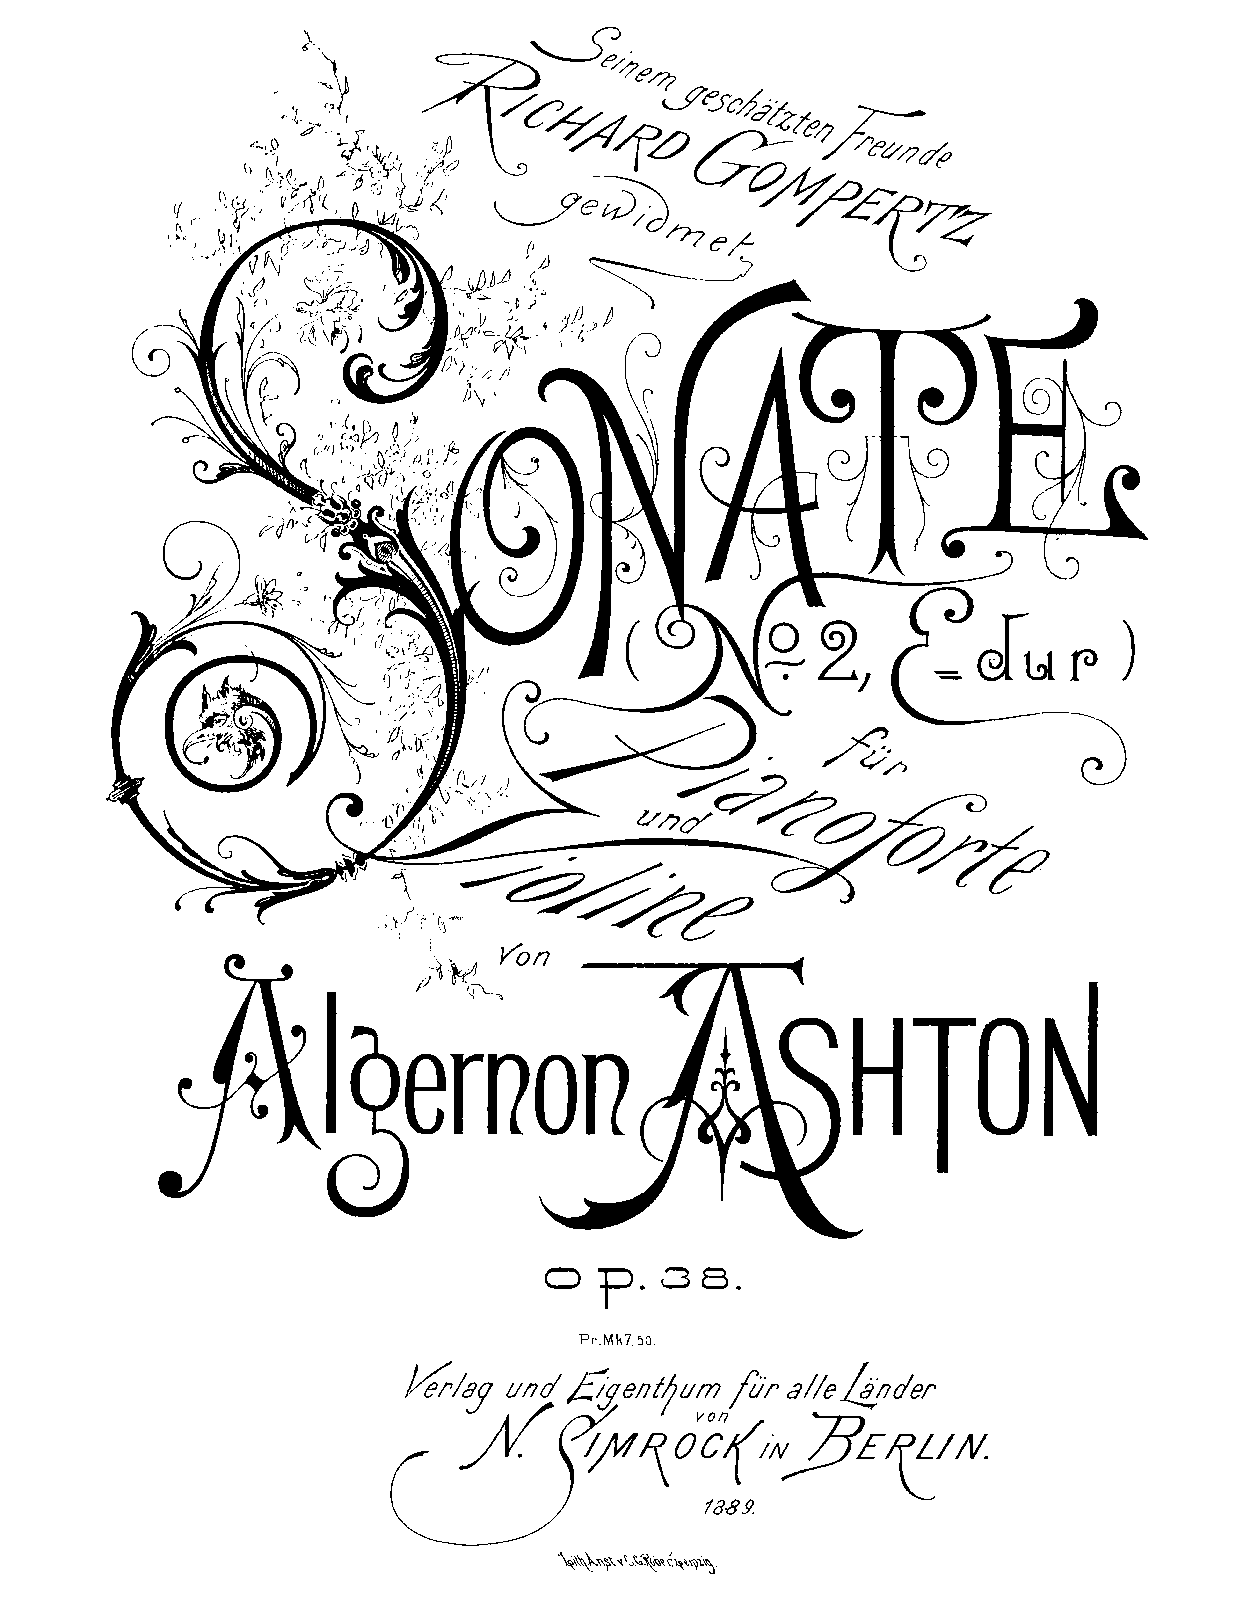 Seinem geschätzten Freunde
RICHARD GOMPERTZ
gewidmet.
SONATE
(No 2, E=dur)
für
Pianoforte
und
Violine
von
Algernon ASHTON
op. 38.
Pr. Mk 7,50.
Verlag und Eigenthum für alle Länder
von
N. SIMROCK in BERLIN.
1889.
Lith. Anst. v. C. G. Röder, Leipzig.